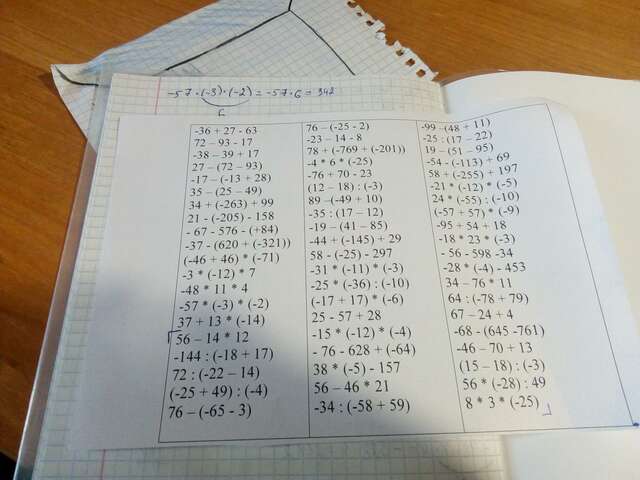 -57·(-3)·(-2) = -57·6 = 342
6
-36 + 27 - 63
72 – 93 - 17
-38 – 39 + 17
27 – (72 – 93)
-17 – (-13 + 28)
35 – (25 – 49)
34 + (-263) + 99
21 - (-205) - 158
- 67 - 576 - (+84)
-37 - (620 + (-321))
(-46 + 46) * (-71)
-3 * (-12) * 7
-48 * 11 * 4
-57 * (-3) * (-2)
37 + 13 * (-14)
56 – 14 * 12
-144 : (-18 + 17)
72 : (-22 – 14)
(-25 + 49) : (-4)
76 – (-65 - 3)
76 – (-25 - 2)
-23 – 14 - 8
78 + (-769 + (-201))
-4 * 6 * (-25)
-76 + 70 - 23
(12 – 18) : (-3)
89 –(-49 + 10)
-35 : (17 – 12)
-19 – (41 – 85)
-44 + (-145) + 29
58 - (-25) - 297
-31 * (-11) * (-3)
-25 * (-36) : (-10)
(-17 + 17) * (-6)
25 - 57 + 28
-15 * (-12) * (-4)
- 76 - 628 + (-64)
38 * (-5) - 157
56 – 46 * 21
-34 : (-58 + 59)
-99 –(48 + 11)
-25 : (17 – 22)
19 – (51 – 95)
-54 - (-113) + 69
58 + (-255) + 197
-21 * (-12) * (-5)
24 * (-55) : (-10)
(-57 + 57) * (-9)
-95 + 54 + 18
-18 * 23 * (-3)
- 56 - 598 -34
-28 * (-4) - 453
34 – 76 * 11
64 : (-78 + 79)
67 – 24 + 4
-68 - (645 -761)
-46 – 70 + 13
(15 – 18) : (-3)
56 * (-28) : 49
8 * 3 * (-25)